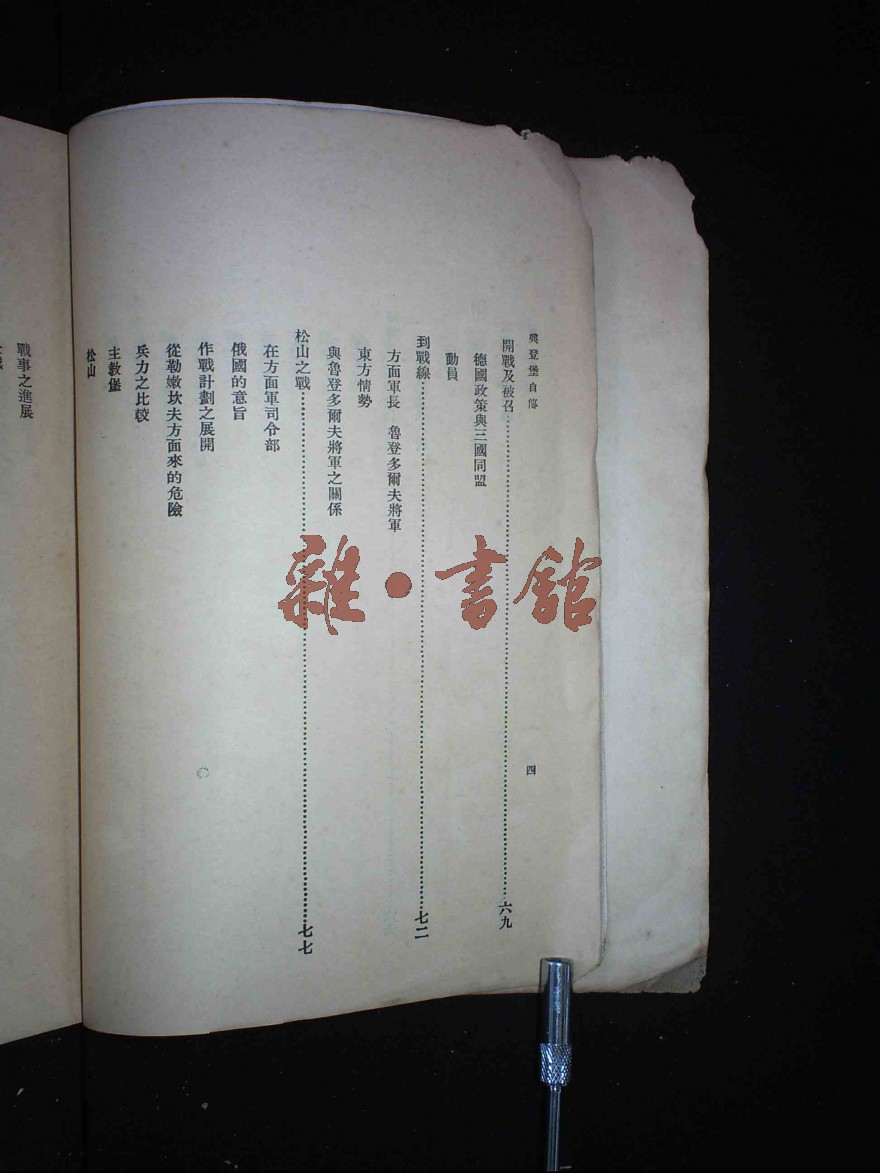 興登堡自傳
四
開戰及被召……六九
德國政策與三國同盟
動員
到戰線……七二
方面軍長 魯登多爾夫將軍
東方情勢
與魯登多爾夫將軍之關係
松山之戰……七七
在方面軍司令部
俄國的意旨
作戰計劃之展開
從勒嫩坎夫方面來的危險
兵力之比較
主教堡
松山
戰事之進展
雜·書館